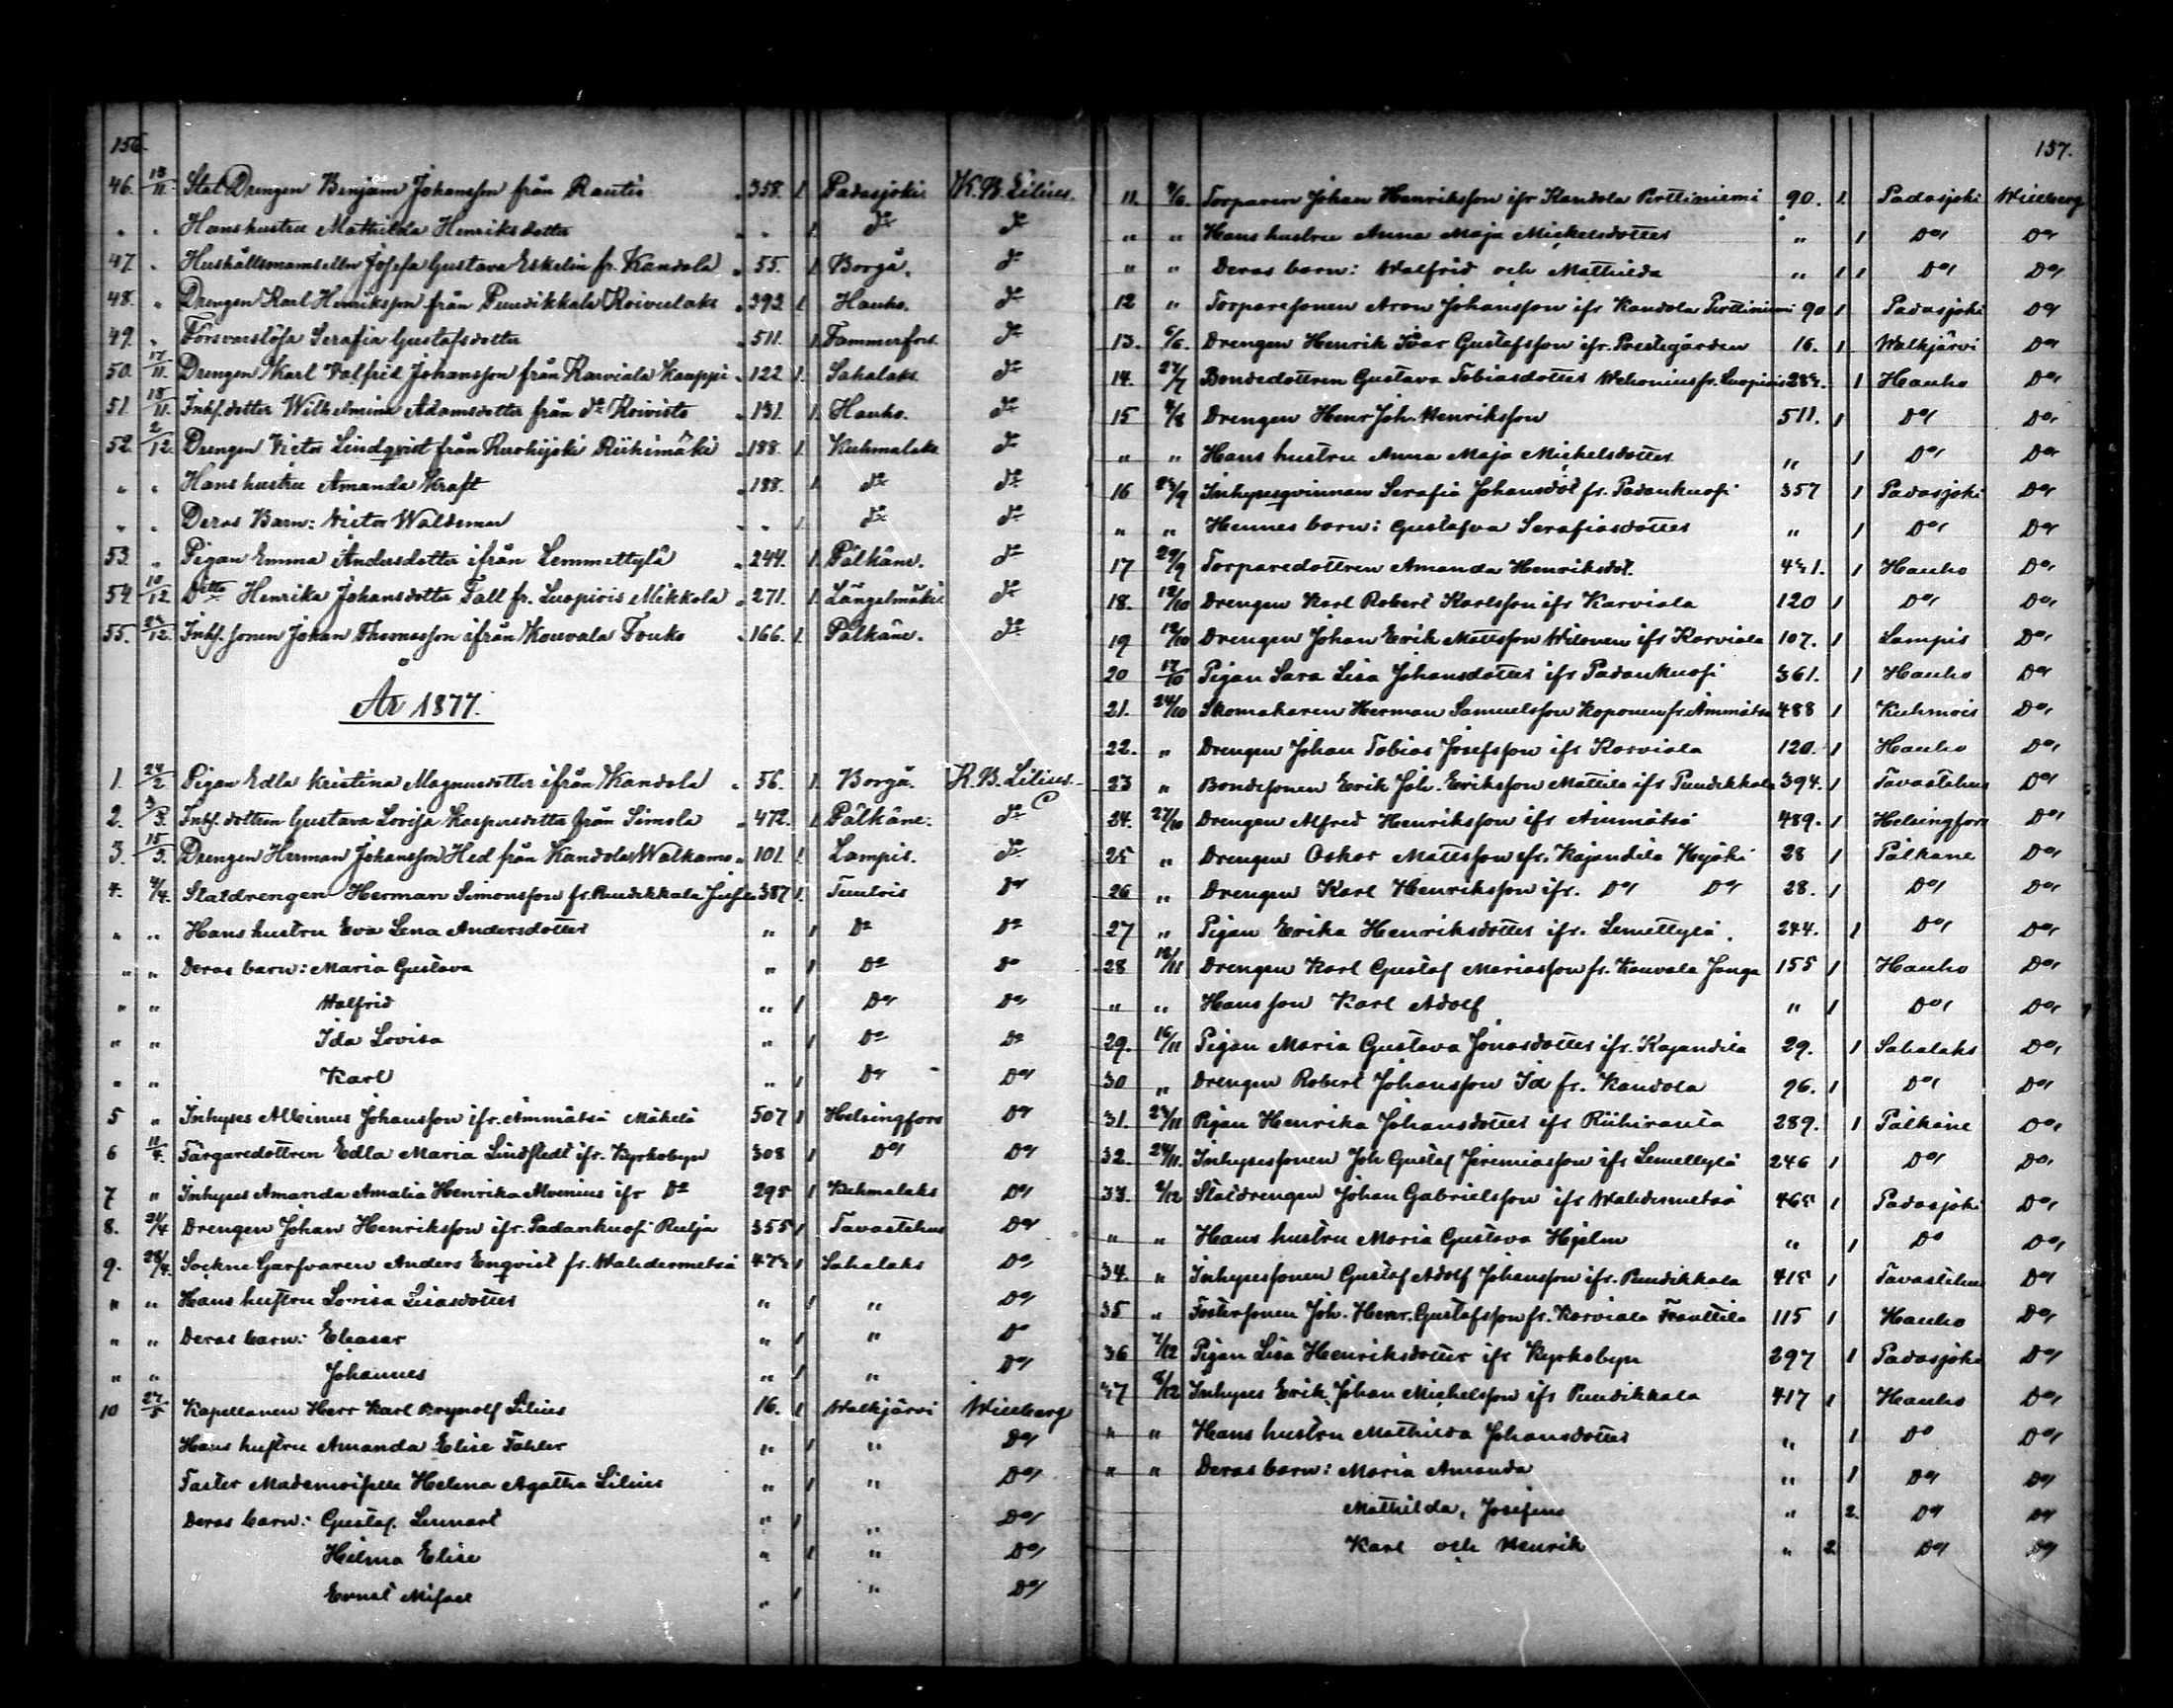 156.
46. 13/11. Stat Drengen Benjam Johansson från Rautis 358. 1. Padasjoki K. B. Lilius.
" " Hans hustru Mathilda Henriksdotter " 1. do do
47. " Hushållsmamsellen Josefa Gustava Eskelin fr. Kandola 55. 1. Borgå. do
48. " Drengen Karl Henriksson från Puudikkala Koivulaks 393 1. Hauho. do
49. " Försvarslösa Serafia Gustafsdotter 511. 1. Tammerfors. do
50. 17/11. Drengen Karl Valfrid Johansson från Karviala Kauppi 122 1. Sahalaks do
51. 18/11. Inhs. dotter Wilhelmina Adamsdotter från do Koivisto 131. 1. Hauho. do
52. 2/12. Drengen Victor Lindqvist från Kurohijoki Riihimäki 188. 1. Kuhmalaks do
" " Hans hustru Amanda Kraft 188. 1. do do
" " Deras Barn: Victor Waldemar " 1. do do
53. " Pigan Emma Andersdotter ifrån Lemmettylä 244. 1. Pälkäne. do
54. 10/12. Ditto Henrika Johansdotter Tall fr. Luopiois Mikkola 271. 1. Längelmäki do
55. 24/12. Inhs. sonen Johan Thomasson ifrån Kouvala Touko 166. 1. Pälkäne. do
År 1877.
1. 24/2 Pigan Edla Kristina Magnusdotter ifrån Kandola 56. 1. Borgå. K. B. Lilius
2. 3/3. Inhs. dottren Gustava Lovisa Kaspersdotter från Simola 472. 1. Pälkäne. do
3. 15/3. Drengen Herman Johansson Hed från Kandola Walkamo 101. 1. Lampis. do
4. 4/4. Statdrengen Herman Simonsson fr. Puudikkala 387 1. Tuulois Do
" " Hans hustru Eva Lena Andersdotter " 1 Do Do
" " Deras barn: Maria Gustava " 1 Do Do
" " Walfrid " 1 Do Do
" " Ida Lovisa " 1 Do Do
" " Karl " 1 Do Do
5 " Inhyses Albinus Johansson ifr. Ämmätsä Mäkelä 507 1 Helsingfors Do
6 11/4. Färgaredottren Edla Maria Lindstedt ifr. Kyrkobyn 308 1 Do Do
7 " Inhyses Amanda Amalia Henrika Alvenius ifr Do 295 1 Kuhmalaks Do
8. 21/4 Drengen Johan Henriksson ifr. Padankuosi Rulja 355 1 Tavastehus Do
9. 28/4. Sockne Garfvaren Anders Enqvist fr. Wahdermetsä 1 Sahalaks Do
" " Hans hustru Lovisa Lisasdotter " 1 " Do
" " Deras barn: Eleasar " 1 " Do
" " Johannes " 1 " Do
10 27/5 Kapellanen Herr Karl Brynolf Lilius 16. 1 Walkjärvi Willberg
Hans hustru Amanda Elise Tahler " 1 " Do
Faster Mademoiselle Helena Agatha Lilius " 1 " Do
Deras barn: Gustaf Lennart " 1 " Do
Hilma Elise " 1 " Do
Ernst Misael " 1 " Do
157.
11. 9/6. Torparen Johan Henriksson ifr Kandola Perttiniemi 90. 1. Padasjoki Willberg
" " Hans hustru Anna Maja Mickelsdotter " 1 Do Do
" " Deras barn: Walfrid och Mathilda " 1 1 Do Do
12 " Torparesonen Aron Johansson ifr Kandola Perttiniemi 90 1 Padasjoki Do
13. 6/6. Drengen Henrik Ivar Gustafsson ifr. Prestegården 16. 1 Walkjärvi Do
14. 27/7 Bondedottren Gustava Tobiasdotter Wehonius fr. Luopiois 1 Hauho Do
15 4/8 Drengen Henr Joh. Henriksson 511. 1 Do Do
" " Hans hustru Anna Maja Michelsdotter " 1 Do Do
16 23/9 Inhysesqvinnan Serafia Johansdot fr. Padankuosi 357 1 Padasjoki Do
" " Hennes barn: Gustafva Serafiasdotter " 1 Do Do
17 29/9 Torparedottren Amanda Henriksdot. 1 Hauho Do
18. 12/10 Drengen Karl Robert Karlsson ifr Karviala 120 1 Do Do
19 12/10 Drengen Johan Erik Mattsson Wilonen ifr Karviala 107. 1 Lampis Do
20 17/10 Pigan Sara Lisa Johansdotter ifr Padankuosi 361. 1 Hauho Do
21. 24/10 Skomakaren Herman Samuelsson Koponen fr. Ämmätsä 488 1 Kuhmois Do
22. " Drengen Johan Tobias Josefsson ifr Karviala 120. 1 Hauho Do
23 " Bondesonen Erik Joh. Eriksson Mattila ifr Puudikkala 394. 1 Tavastehus Do
24. 27/10 Drengen Alfred Henriksson ifr Ämmätsä 489. 1 Helsingfors Do
25 " Drengen Oskar Mattsson ifr. Kajandila Hyöki 28 1 Pälkäne Do
26 " Drengen Karl Henriksson ifr. Do Do 28. 1 Do Do
27 " Pigan Erika Henriksdotter ifr. Lemettylä. 244. 1 Do Do
28 10/11 Drengen Karl Gustaf Mariasson fr. Kouvala Janga 155 1 Hauho Do
" " Hans son Karl Adolf " 1 Do Do
29. 16/11 Pigan Maria Gustava Jonasdotter ifr. Kajandila 29. 1 Sahalaks Do
30 " Drengen Robert Johansson Id fr. Kandola 96. 1 Do Do
31. 23/11 Pigan Henrika Johansdotter ifr Riihiranta 289. 1 Pälkäne Do
32. 24/11. Inhysessonen Joh Gustaf Jeremiasson ifr Lemettylä 246 1 Do Do
33. 2/12 Statdrengen Johan Gabrielsson ifr Wahdermetsä 465 1 Padasjoki Do
" " Hans hustru Maria Gustava Hjelm " 1 Do Do
34. " Inhysessonen Gustaf Adolf Johansson ifr. Puudikkala 415 1 Tavastehus Do
35 " Fostersonen Joh. Henr. Gustafsson fr. Karviala Franttila 115 1 Hauho Do
36 7/12 Pigan Lisa Henriksdotter ifr Kyrkobyn 297 1 Padasjoki Do
37 8/12 Inhyses Erik Johan Michelsson ifr Puudikkala 417 1 Hauho Do
" " Hans hustru Mathilda Johansdotter " 1 Do Do
" " Deras barn: Maria Amanda " 1 Do Do
Mathilda, Josefina " 2. Do Do
Karl och Henrik " 2 Do Do